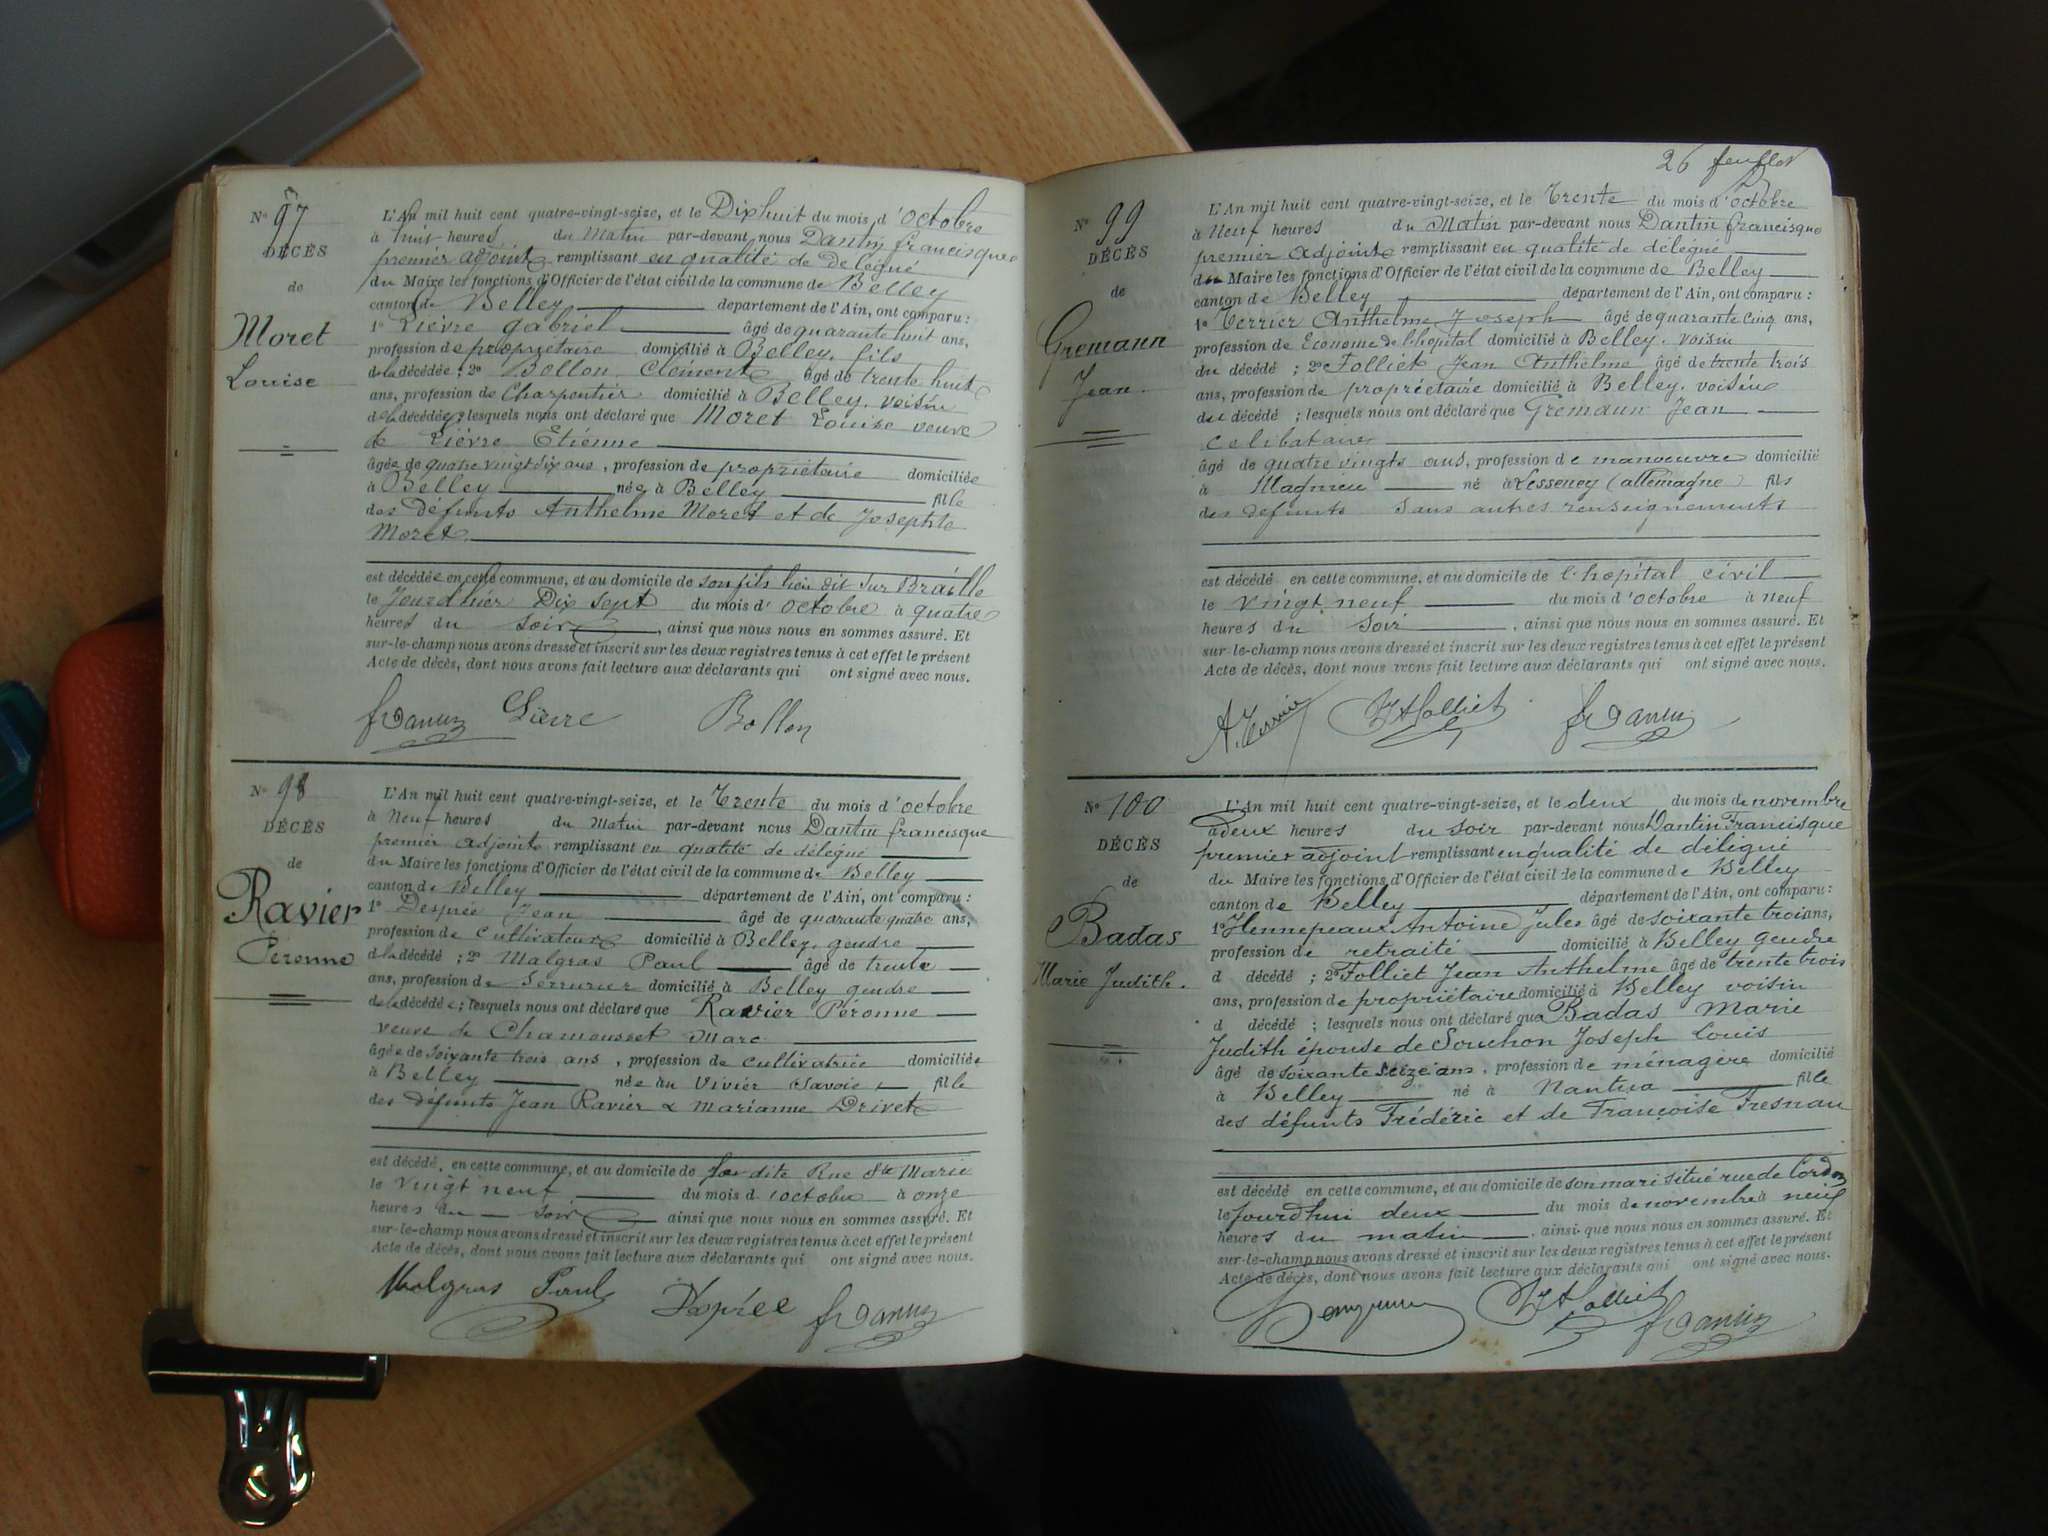 N° 97
DÉCÈS
de
Moret
Louise
L'An mil huit cent quatre-vingt-seize, et le Dixhuit du mois d'octobre
à huit heures du Matin par-devant nous Dantin francisque
premier adjoint remplissant en qualité de délégué
du Maire les fonctions d'Officier de l'état civil de la commune de Belley
canton de Belley département de l'Ain, ont comparu :
1° Lièvre gabriel âgé de quarante huit ans,
profession de propriétaire domicilié à Belley, fils
de la décédée ; 2° Bollon Clément âgé de trente huit
ans, profession de Charpentier domicilié à Belley, voisin
de la décédée ; lesquels nous ont déclaré que Moret Louise veuve
de Lièvre Etienne
âgée de quatre vingt dix ans, profession de propriétaire domiciliée
à Belley née à Belley fille
des défunts Anthelme Moret et de Josephte
Moret
est décédée en cette commune, et au domicile de son fils lieu dit Sur Braille
le Jourdhier Dix Sept du mois d'octobre à quatre
heures du soir, ainsi que nous nous en sommes assuré. Et
sur-le-champ nous avons dressé et inscrit sur les deux registres tenus à cet effet le présent
Acte de décès, dont nous avons fait lecture aux déclarants qui ont signé avec nous.
frDantin Lièvre Bollon
N° 98
DÉCÈS
de
Ravier
Péronne
L'An mil huit cent quatre-vingt-seize, et le Trente du mois d'octobre
à Neuf heures du Matin par-devant nous Dantin francisque
premier adjoint remplissant en qualité de délégué
du Maire les fonctions d'Officier de l'état civil de la commune de Belley
canton de Belley département de l'Ain, ont comparu :
1° Desprée Jean âgé de quarante quatre ans,
profession de cultivateur domicilié à Belley, gendre
de la décédé ; 2° Malgras Paul âgé de trente
ans, profession de Serrurier domicilié à Belley gendre
de la décédée ; lesquels nous ont déclaré que Ravier Péronne
veuve de Chamousset Marc
âgée de soixante trois ans, profession de cultivatrice domiciliée
à Belley née au Vivier Savoie fille
des défunts Jean Ravier & Marianne Drivet
est décédé, en cette commune, et au domicile de son dite Rue Ste Marie
le vingt neuf du mois d'octobre à onze
heures du soir ainsi que nous nous en sommes assuré. Et
sur-le-champ nous avons dressé et inscrit sur les deux registres tenus à cet effet le présent
Acte de décès, dont nous avons fait lecture aux déclarants qui ont signé avec nous.
Malgras Paul D'esprée frDantin
26 feuillet
N° 99
DÉCÈS
de
Gremann
Jean
L'An mil huit cent quatre-vingt-seize, et le Trente du mois d'octobre
à Neuf heures du Matin par-devant nous Dantin francisque
premier adjoint remplissant en qualité de délégué
du Maire les fonctions d'Officier de l'état civil de la commune de Belley
canton de Belley département de l'Ain, ont comparu :
1° Terrier Anthelme Joseph âgé de quarante cinq ans,
profession de Econome de l'hopital domicilié à Belley. voisin
du décédé ; 2° Folliet Jean Anthelme âgé de trente trois
ans, profession de propriétaire domicilié à Belley. voisin
du décédé ; lesquels nous ont déclaré que Gremann Jean
celibataire
âgé de quatre vingts ans, profession de manoeuvre domicilié
à Magnieu né à Lesseney (allemagne) fils
des defunts Sans autres renseignements
est décédé en cette commune, et au domicile de l'hopital civil
le vingt neuf du mois d'octobre à neuf
heures du soir, ainsi que nous nous en sommes assuré. Et
sur-le-champ nous avons dressé et inscrit sur les deux registres tenus à cet effet le présent
Acte de décès, dont nous avons fait lecture aux déclarants qui ont signé avec nous.
A. Terrier JAFolliet frDantin
N° 100
DÉCÈS
de
Badas
Marie Judith.
L'An mil huit cent quatre-vingt-seize, et le deux du mois de novembre
à deux heures du soir par-devant nous Dantin Francisque
premier adjoint remplissant en qualité de délégué
du Maire les fonctions d'Officier de l'état civil de la commune de Belley
canton de Belley département de l'Ain, ont comparu :
1° Hennepeaux Antoine Jules âgé de soixante trois ans,
profession de retraité domicilié à Belley gendre
d décédé ; 2° Folliet Jean Anthelme âgé de trente trois
ans, profession de propriétaire domicilié à Belley voisin
d décédé ; lesquels nous ont déclaré que Badas Marie
Judith épouse de Souchon Joseph Louis
âgé de soixante seize ans, profession de ménagère domicilié
à Belley né à Nantua fille
des défunts Frédéric et de Françoise Fresnau
est décédé en cette commune, et au domicile de son mari situé rue de Cordon
le jourdhui deux du mois de novembre à neuf
heures du matin, ainsi que nous nous en sommes assuré. Et
sur-le-champ nous avons dressé et inscrit sur les deux registres tenus à cet effet le présent
Acte de décès, dont nous avons fait lecture aux déclarants qui ont signé avec nous.
JAFolliet frDantin